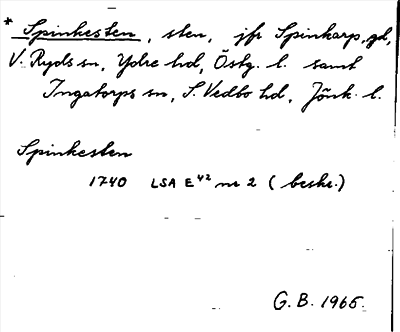 * Spinkesten, sten, jfr Spinkarp, gd,
V. Ryds sn, Ydre hd, Östg. l. samt
Ingatorps sn, S. Vedbo hd, Jönk. l.
Spinkesten
1740 LSA E42 nr 2 (beskr.)
G. B. 1965.